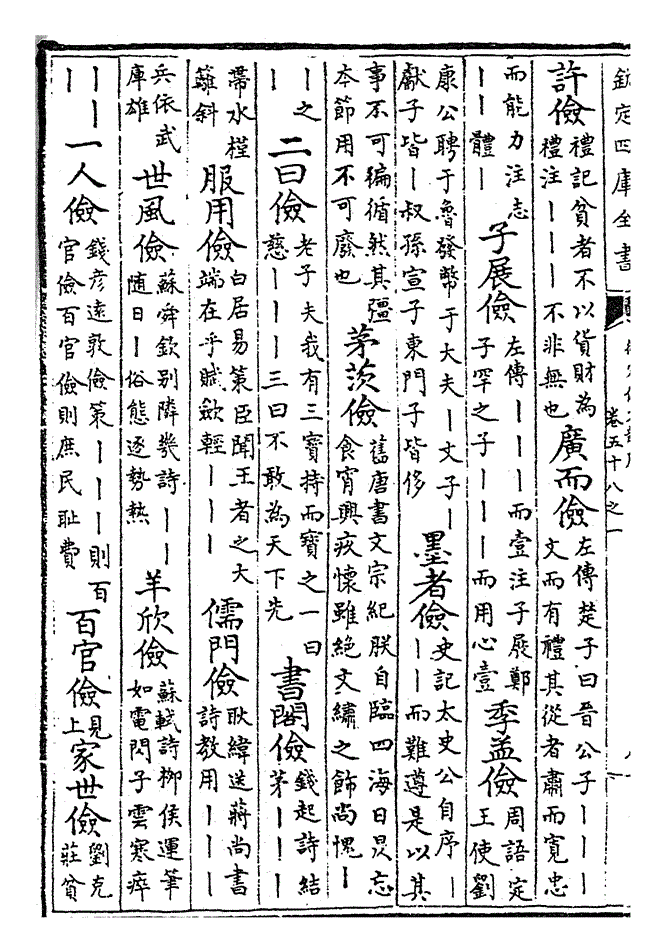 欽定四庫全書
卷五十八之一
許儉 禮記貧者不以貨財為禮注———不非無也 廣而儉 左傳楚子曰晉公子———文而有禮其從者肅而寬忠
而能力注志——體— 子展儉 左傳———而壹注子展鄭子罕之子———而用心壹 季孟儉 周語定王使劉
康公聘于魯發幣于大夫—文子—獻子皆—叔孫宣子東門子皆侈 墨者儉 史記太史公自序———而難遵是以其
事不可徧循然其彊本節用不可廢也 茅茨儉 舊唐書文宗紀朕自臨四海日昃忘食宵興疚懷雖絶文繡之飾尚愧—
—之— 二曰儉 老子夫我有三寶持而寶之一曰慈———三曰不敢為天下先 書閣儉 錢起詩結茅———
帶水槿籬斜 服用儉 白居易策臣聞王者之大端在乎賦歛輕——— 儒門儉 耿緯送蔣尚書詩教用———
兵依武庫雄 世風儉 蘇舜欽别隣幾詩——随日—俗態逐勢熱 羊欣儉 蘇軾詩柳侯運筆如電閃子雲寒瘁
——— 一人儉 錢彦遠敦儉策———則百官儉百官儉則庶民耻費 百官儉 見上 家世儉 劉克莊貧